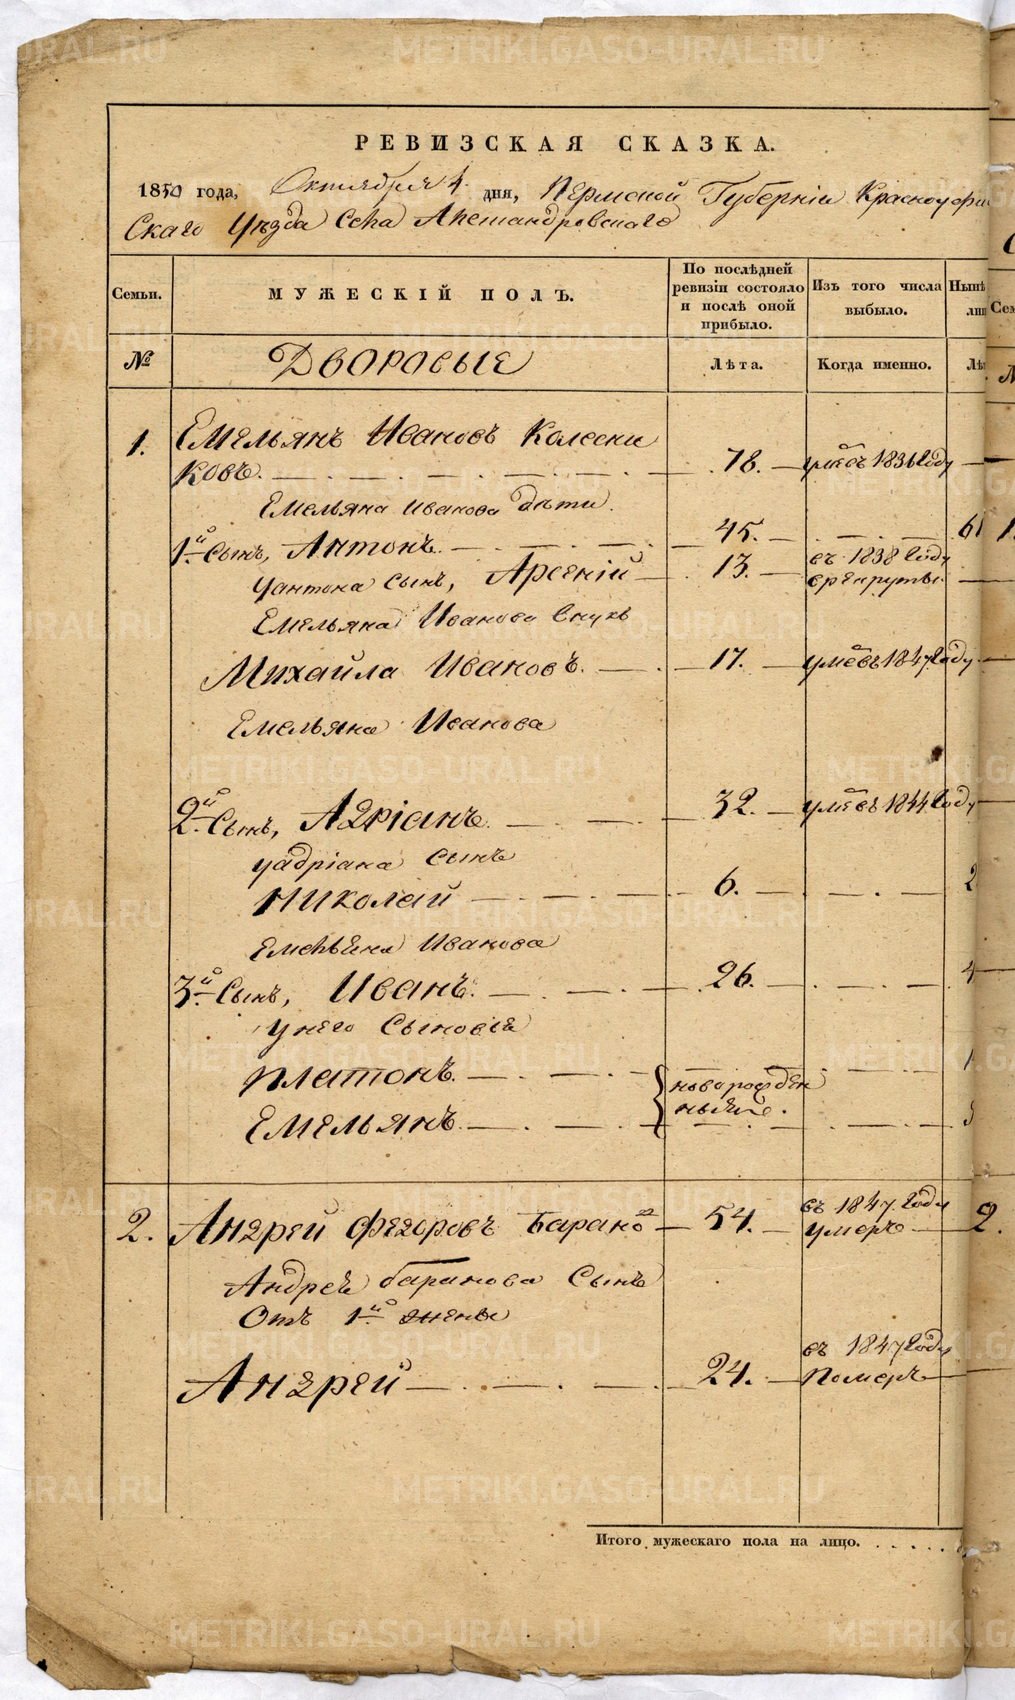 METRIKI.GASO-URAL.RU
РЕВИЗСКАЯ СКАЗКА.
1850 года, Октября 4. дня, Пермской Губерніи Красноуфим
скаго Уѣзда Села Александровскаго
Семьи. МУЖЕСКІЙ ПОЛЪ. По послѣдней ревизіи состояло и послѣ оной прибыло. Изъ того числа выбыло. Нынѣ
№ Дворовые Лѣта. Когда именно.
1. Емельянъ Ивановъ Колесни
ковъ. 78. умре въ 1836 году
Емельяна Иванова дѣти.
1й сынъ, Антонъ. 45. 61
уантона сынъ, Арсеній 13. въ 1838 году
врекруты.
Емельяна Иванова внукъ
Михайла Ивановъ. 17. умре въ 1847 году.
Емельяна Иванова
2й сынъ, Адріанъ. 32. умре въ 1844 году
уадріана сынъ
Николай 6. 2
Емельяна Иванова
3й Сынъ, Иванъ. 26. 4
унего сыновья
Платонъ. новорожден
ные.
Емельянъ.
2. Андрей Федоровъ Баранов 54. въ 1847 году
умеръ
2.
Андрея баранова Сынъ
Отъ 1й жены
Андрей 24. въ 1847 году
Померъ
Итого мужескаго пола на лицо.